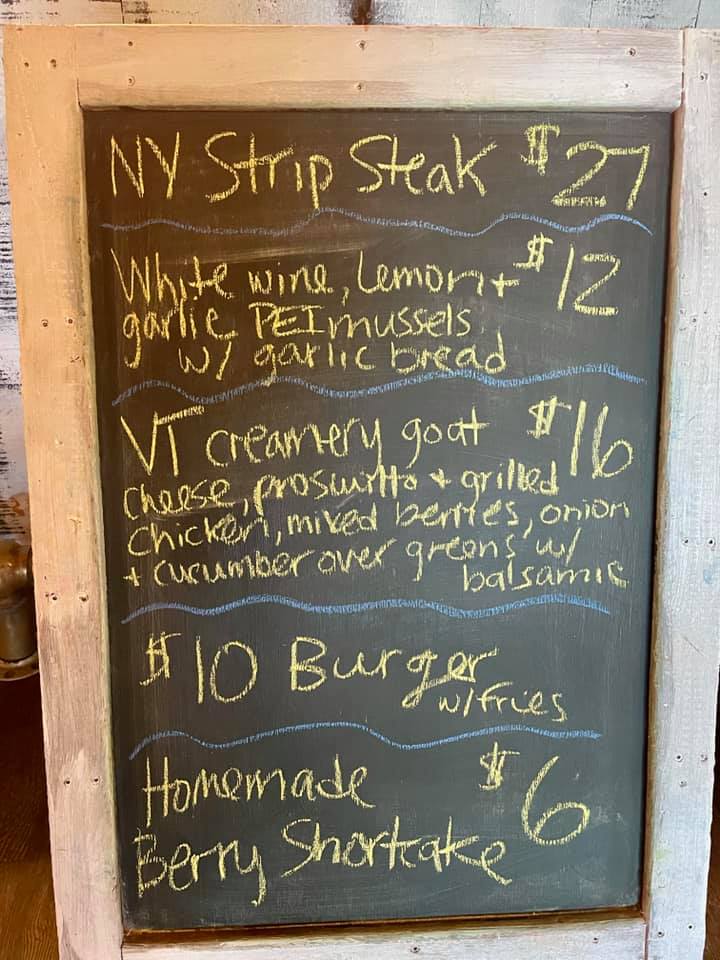 NY Strip Steak $27
White wine, Lemon + $12
garlic PEI mussels
w/ garlic bread
VT creamery goat $16
cheese, proswitto + grilled
chicken, mixed berries, onion
+ cucumber over greens w/
balsamic
$10 Burger
w/fries
Homemade $6
Berry Shortcake